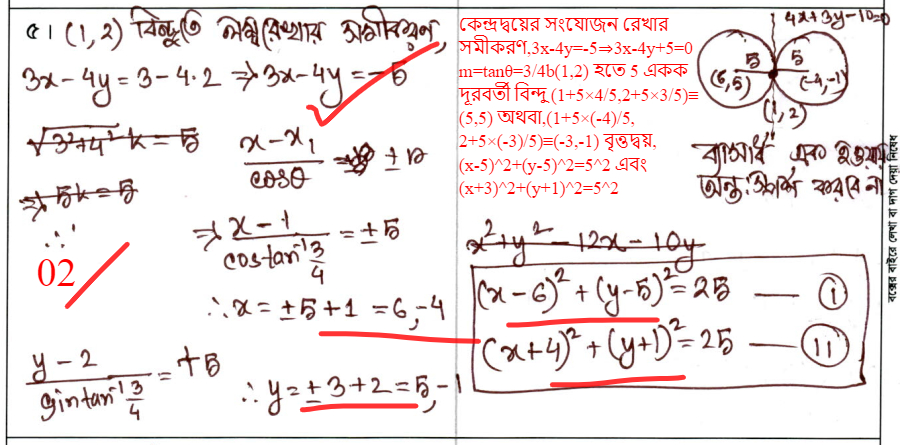 ৫। (1, 2) বিন্দুতে লম্বরেখার সমীকরণ,
3x-4y = 3-4·2 ⇒ 3x-4y = -5
√3²+4² k = 5
⇒ 5k = 5
∴
02
x-x₁/cosθ = ± r
⇒ x-1/cos tan⁻¹ 3/4 = ±5
∴ x = ±5+1 = 6, -4
y-2/sin tan⁻¹ 3/4 = ±5
∴ y = ±3+2 = 5, -1
কেন্দ্রদ্বয়ের সংযোজন রেখার
সমীকরণ,3x-4y=-5⇒3x-4y+5=0
m=tanθ=3/4b(1,2) হতে 5 একক
দূরবর্তী বিন্দু (1+5×4/5,2+5×3/5)≡
(5,5) অথবা,(1+5×(-4)/5,
2+5×(-3)/5)≡(-3,-1) বৃত্তদ্বয়,
(x-5)^2+(y-5)^2=5^2 এবং
(x+3)^2+(y+1)^2=5^2
4x+3y-10=0
5
5
(6,5)
(-4,-1)
(1,2)
ব্যাসার্ধ এক হওয়ায়
অন্তঃস্পর্শ করবে না
x²+y²-12x-10y
(x-6)²+(y-5)²=25 — (i)
(x+4)²+(y+1)²=25 — (11)
বক্সের বাইরে লেখা বা দাগ দেয়া নিষেধ